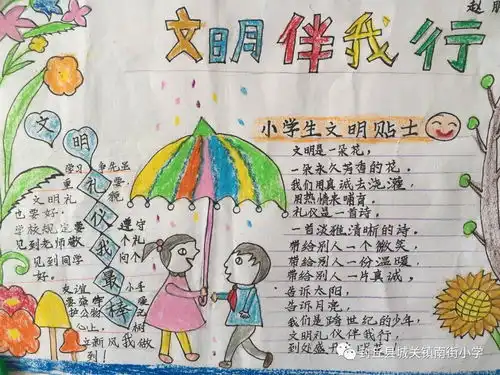 赵
文明伴我行
小学生文明贴士
文明是一朵花,
一朵永久芳香的花。
我们用真诚去浇灌,
用热情来哺育。
礼仪是一首诗,
一首淡雅,清晰的诗。
带给别人一个微笑,
带给别人一份温暖,
带给别人一片真诚。
告诉太阳,
告诉月亮,
我们是跨世纪的少年,
文明礼仪伴我行,
到处盛开
文明
礼仪我最棒
学习争先
重 要
文明礼貌
也要好。遵守
学校规定要
个个
见到老师敬 礼
见到同学 向
好。
友谊 小手
要
护公物
心上, 树
新风我做
到!
封丘县城关镇南街小学